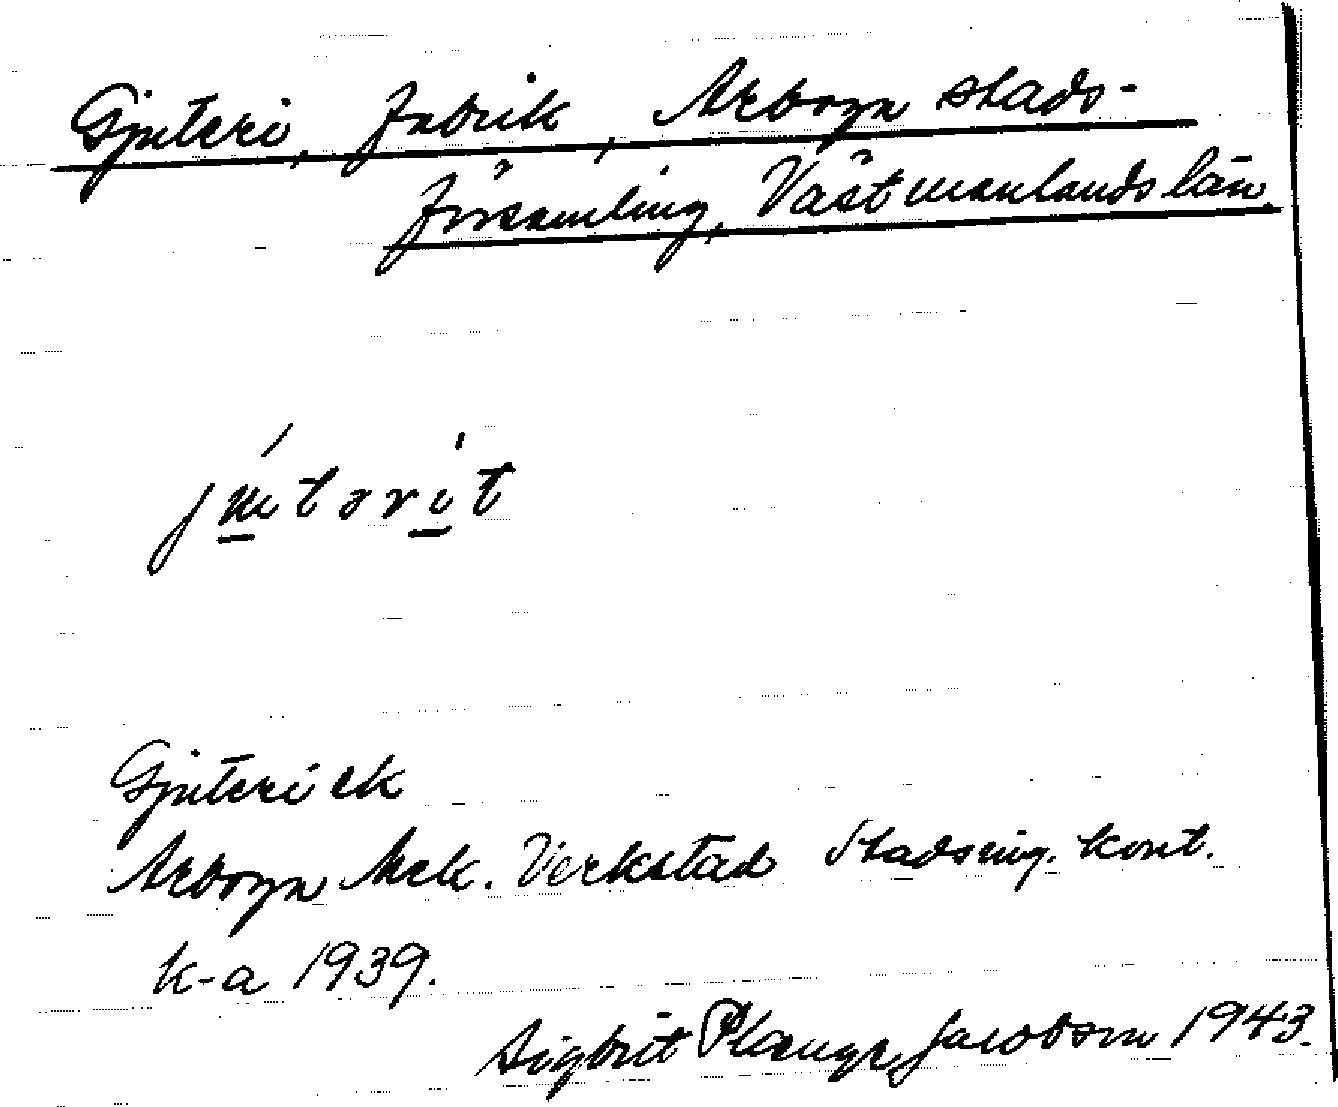 Gjuteri, fabrik, Arboga stads-
församling, Västmanlands län.
Gjuteri ek
Arboga Mek. Verkstad Stadsing. kont.
k-a 1939.
Sigbrit Jacobson 1943.